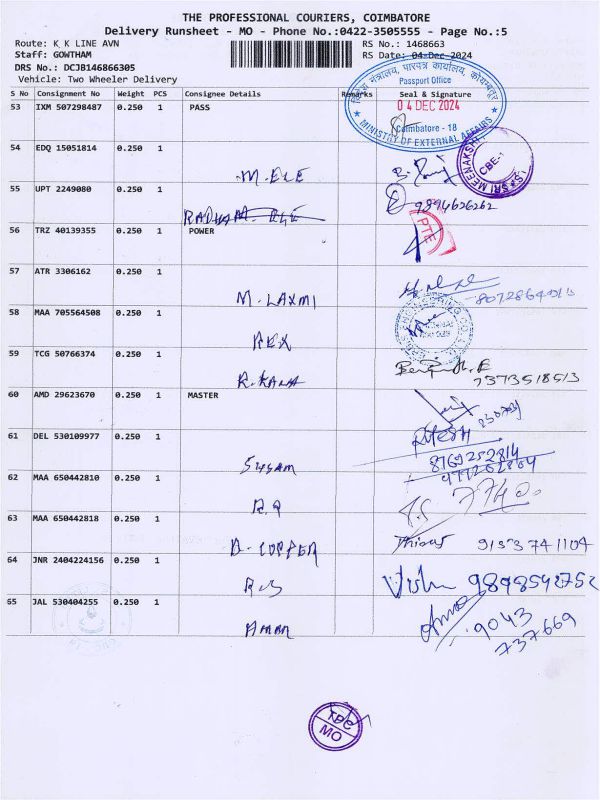 THE PROFESSIONAL COURIERS, COIMBATORE
Delivery Runsheet - MO - Phone No.:0422-3505555 - Page No.:5
Route: K K LINE AVN
RS No.: 1468663
Staff: GOWTHAM
RS Date: 04-Dec-2024
DRS No.: DCJB146866305
Vehicle: Two Wheeler Delivery
S No Consignment No Weight PCS Consignee Details Remarks Seal & Signature
53 IXM 507298487 0.250 1 PASS
Passport Office
04 DEC 2024
Coimbatore - 18
MINISTRY OF EXTERNAL AFFAIRS
54 EDQ 15051814 0.250 1
M. ELE
SRI MEENAKSHI
CBE-1
55 UPT 2249080 0.250 1
9894626262
56 TRZ 40139355 0.250 1 POWER
PTE
57 ATR 3306162 0.250 1
M. LAXMI
58 MAA 705564508 0.250 1
REX
59 TCG 50766374 0.250 1
R. KANNA
7373518513
60 AMD 29623670 0.250 1 MASTER
61 DEL 530109977 0.250 1
SYSAM
RITESH
8769252814
62 MAA 650442810 0.250 1
R.R
7740.
63 MAA 650442818 0.250 1
D. COPPER
64 JNR 2404224156 0.250 1
Vishn 9898542752
65 JAL 530404255 0.250 1
AMMN
9043
737669
TPC
MO